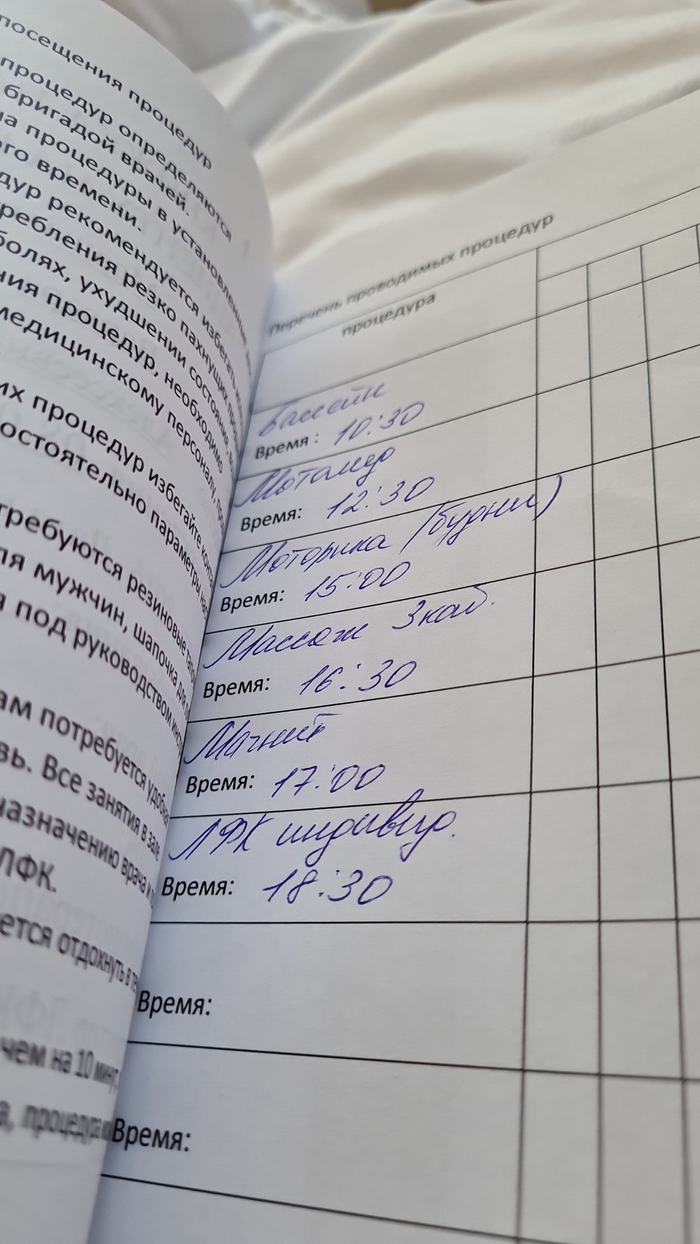 посещения процедур
процедур определяются
бригадой врачей.
на процедуры в установленные
ого времени.
дур рекомендуется избегать
требления резко пахнущих
болях, ухудшении состояния,
ния процедур, необходимо
медицинскому персоналу,
их процедур избегайте
остоятельно параметры
требуются резиновые
ля мужчин, шапочка для
я под руководством
ам потребуется
вь. Все занятия в зале
назначению врача
ЛФК.
ется отдохнуть в
чем на 10 мину
а, процедура
Перечень проводимых процедур
процедура
Бассейн
Время: 10:30
Мотомед
Время: 12:30
Моторика (будни)
Время: 15:00
Массаж 3 каб.
Время: 16:30
Магнит
Время: 17:00
ЛФК индивид.
Время: 18:30
Время:
Время: